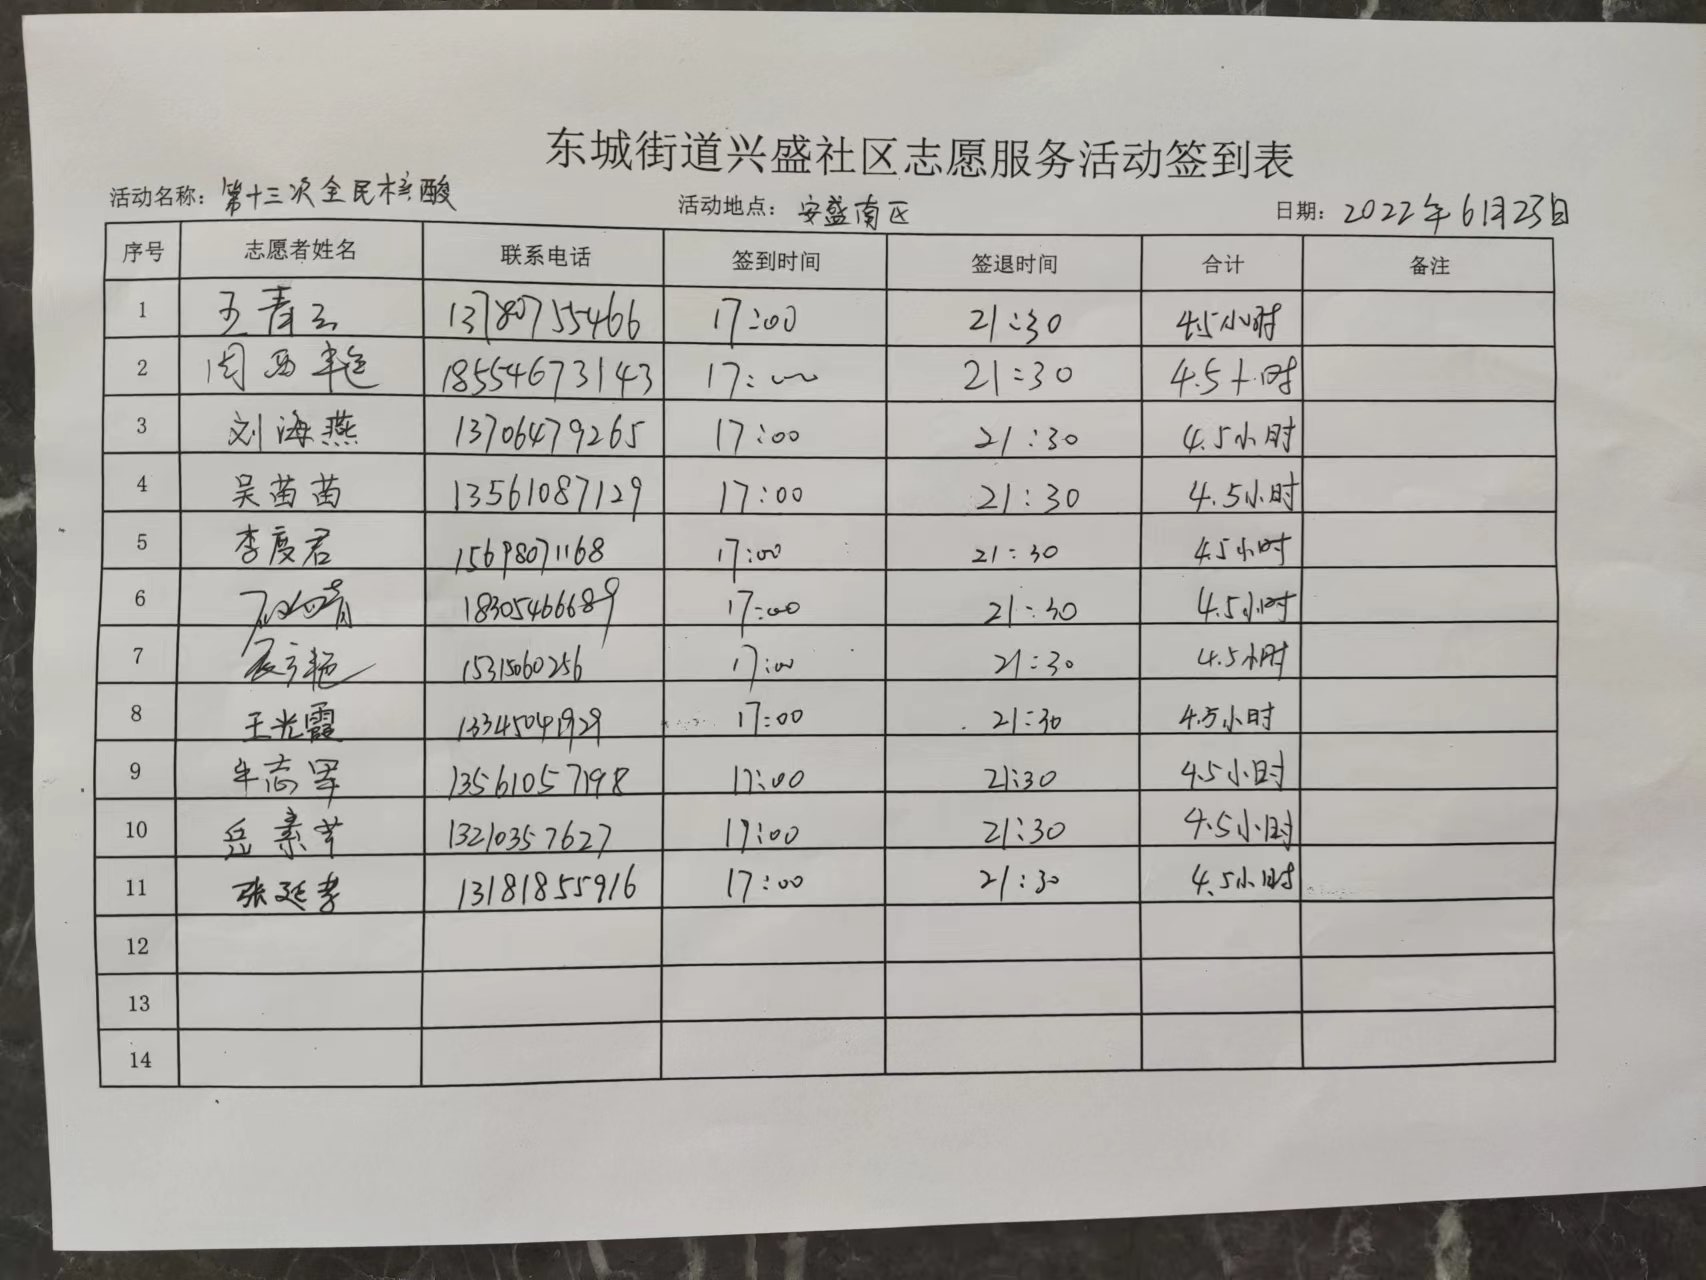 东城街道兴盛社区志愿服务活动签到表
活动名称：第十三次全民核酸 活动地点：安盛南区 日期：2022年6月23日
序号 志愿者姓名 联系电话 签到时间 签退时间 合计 备注
1 王青云 13780755466 17:00 21:30 4.5小时
2 周西艳 18554673143 17:00 21:30 4.5小时
3 刘海燕 13706479265 17:00 21:30 4.5小时
4 吴苗苗 13561087129 17:00 21:30 4.5小时
5 李度君 15698071168 17:00 21:30 4.5小时
6 18305466689 17:00 21:30 4.5小时
7 15315060256 17:00 21:30 4.5小时
8 王光霞 13345041929 17:00 21:30 4.5小时
9 牛志军 13561057198 17:00 21:30 4.5小时
10 岳素芹 13210357627 17:00 21:30 4.5小时
11 张延孝 13181855916 17:00 21:30 4.5小时
12
13
14